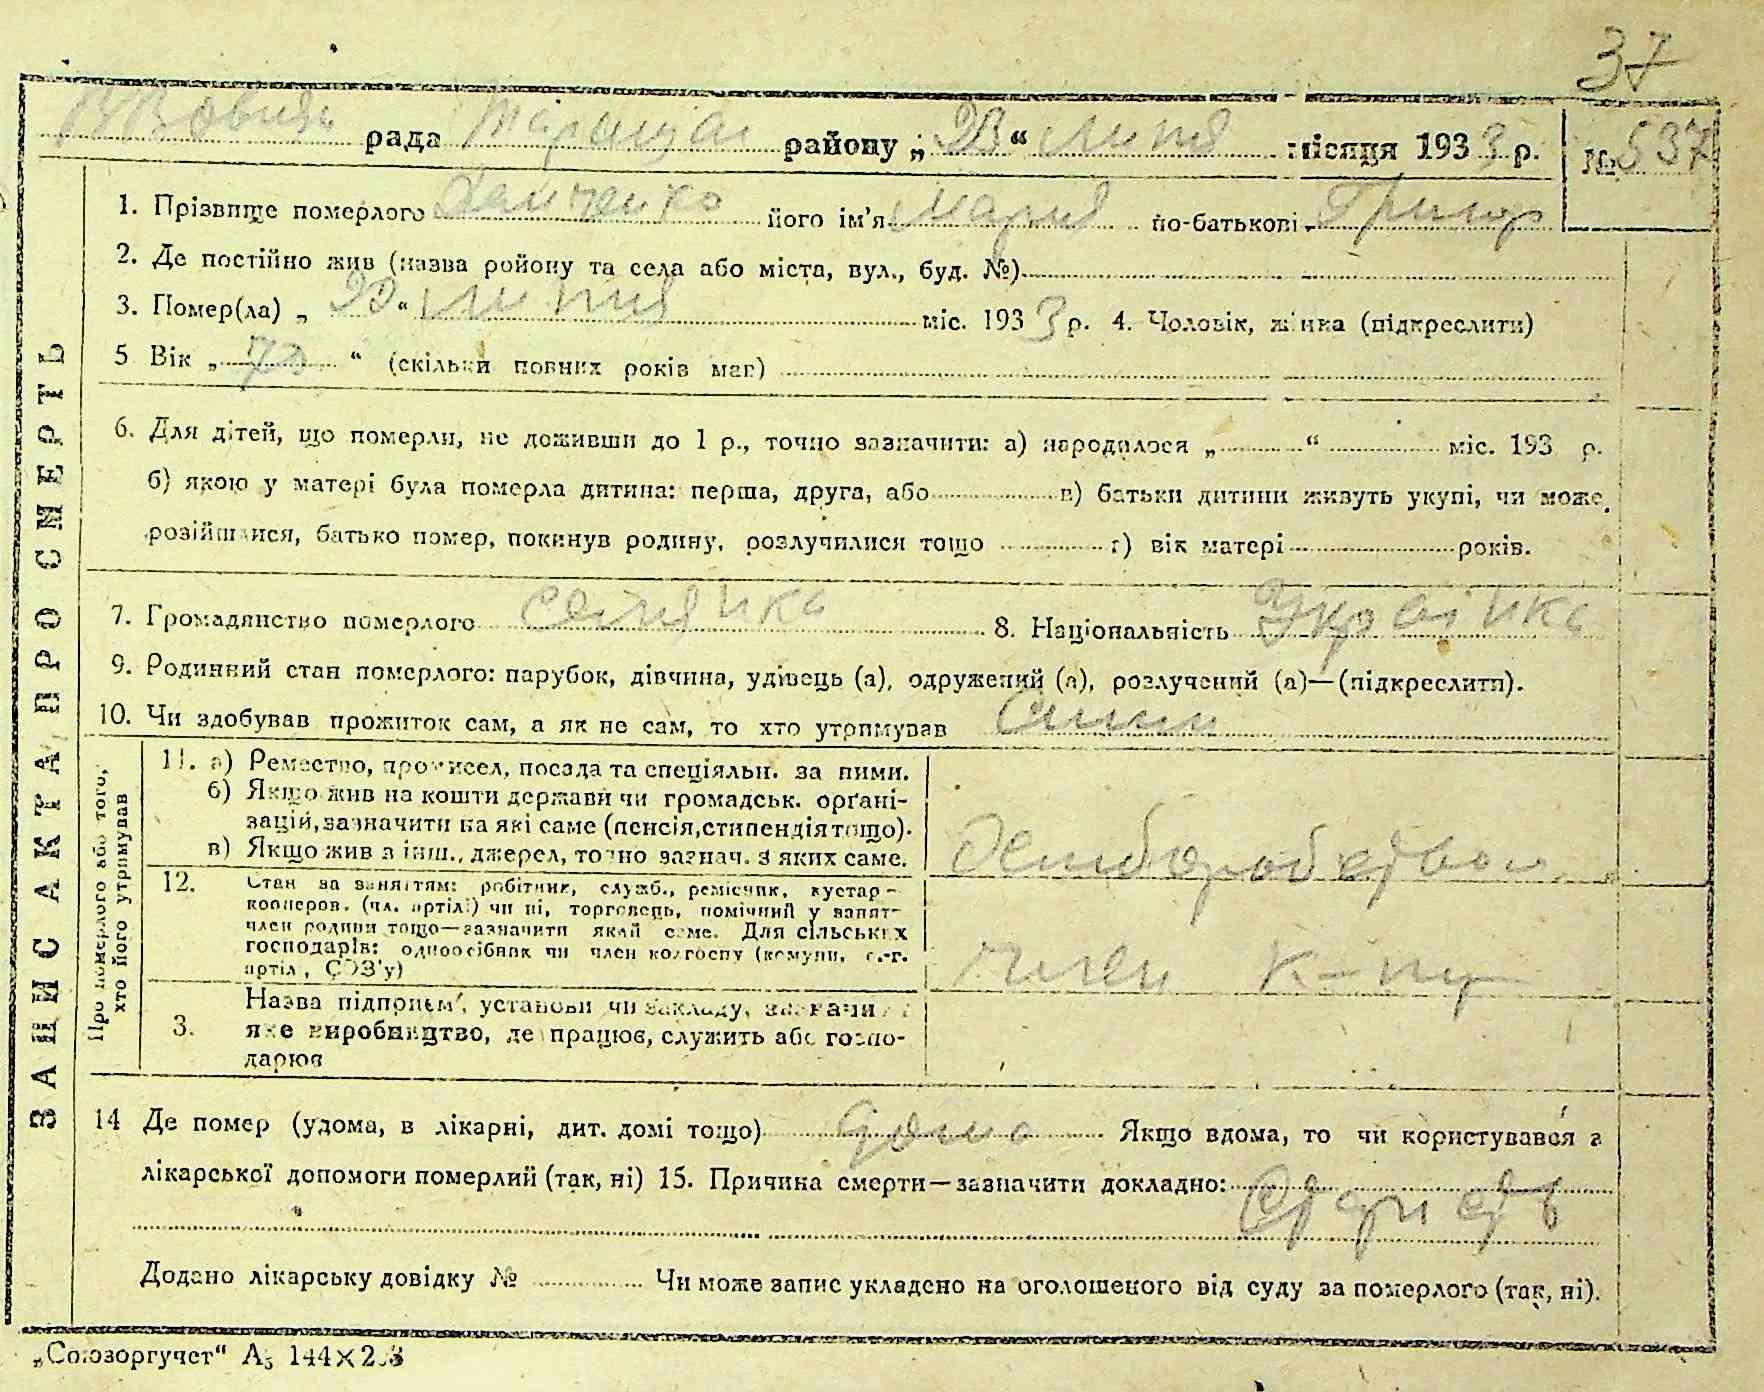 37
рада Таращан району „23“ липня місяця 1933 р. № 537
1. Прізвище померлого Демченко його ім'я Мария по-батькові Григор
2. Де постійно жив (назва ройону та села або міста, вул., буд. №)
3. Помер(ла) „ “ липня міс. 1933 р. 4. Чоловік, жінка (підкреслити)
5 Вік „70“ (скільки повних років мав)
6. Для дітей, що померли, не доживши до 1 р., точно зазначити: а) народилося „ “ міс. 193 р.
б) якою у матері була померла дитина: перша, друга, або в) батьки дитини живуть укупі, чи може
розійшлися, батько помер, покинув родину, розлучилися тощо г) вік матері років.
7. Громадянство померлого 8. Національність Украінка
9. Родинний стан померлого: парубок, дівчина, удівець (а), одружений (а), розлучений (а)—(підкреслити).
10. Чи здобував прожиток сам, а як не сам, то хто утримував
ЗАПИС АКТА ПРО СМЕРТЬ
Про померлого або того,
хто його утримував
11. а) Ремество, промисел, посада та спеціяльн. за ними.
б) Якщо жив на кошти держави чи громадськ. орґані-
зацій, зазначити на які саме (пенсія, стипендія тощо).
в) Якщо жив з інш., джерел, точно зазнач. з яких саме.
12. Стан за заняттям: робітник, служб., ремісник, кустар-
кооперов. (чл. артілі) чи ні, торговець, помічний у занят-
член родини тощо—зазначити який саме. Для сільських
господарів: одноосібник чи член колгоспу (комуни, с.-г.
артіл , СОЗ'у)
член
3. Назва підприєм , установи чи закладу, зазначи
яке виробництво, де працює, служить або госпо-
дарює
14 Де помер (удома, в лікарні, дит. домі тощо) дома Якщо вдома, то чи користувався з
лікарської допомоги померлий (так, ні) 15. Причина смерти—зазначити докладно:
Додано лікарську довідку № Чи може запис укладено на оголошеного від суду за померлого (так, ні).
„Союзоргучет“ А5 144×203